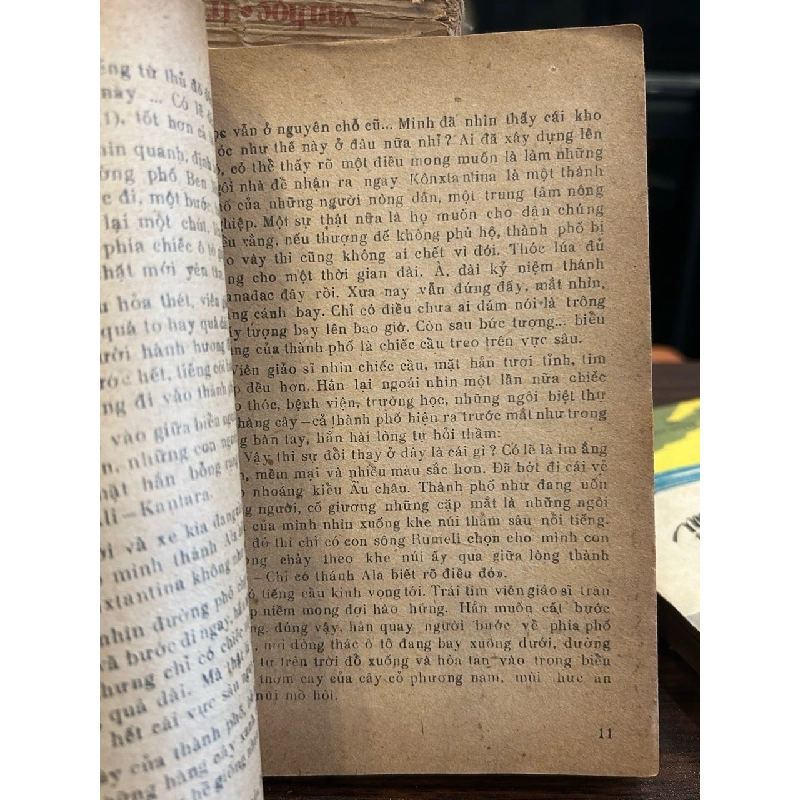 văn học
ếng từ thủ đô
này ... Có lẽ
1), tốt hơn cả
hìn quanh, định
ờng phố Ben
ớc đi, một bước
lại một chút,
phía chiếc ô tô
hật mới yên
u hỏa thét, viên
quá to hay quá
ười hành hương
ước hết, tiếng còi
ng đi vào thành
vào giữa biển
ền, những con
mặt hắn bỗng
ali – Kantara.
hì và xe kia đang
ở mình thành
nxtantina không
nhìn đường phố
và bước đi ngay,
nhưng chỉ có chiếc
quá dài. Mà thật
hết cái vực sâu
ẩy của thành phố,
những hàng cây
hề giống
ọc vẫn ở nguyên chỗ cũ... Mình đã nhìn thấy cái kho
óc như thế này ở đâu nữa nhỉ? Ai đã xây dựng lên
ó, có thể thấy rõ một điều mong muốn là làm những
gôi nhà để nhận ra ngay Kônxtantina là một thành
hố của những người nông dân, một trung tâm nông
ghiệp. Một sự thật nữa là họ muốn cho dân chúng
iểu xằng, nếu thượng đế không phù hộ, thành phố bị
ao vây thì cũng không ai chết vì đói. Thóc lúa đủ
ùng cho một thời gian dài. À, đài kỷ niệm thánh
anađac đây rồi. Xưa nay vẫn đứng đấy, mắt nhìn,
ng cánh bay. Chỉ có điều chưa ai dám nói là trông
ấy tượng bay lên bao giờ. Còn sau bức tượng... biểu
ợng của thành phố là chiếc cầu treo trên vực sâu.
Viên giáo sĩ nhìn chiếc cầu, mặt hắn tươi tỉnh, tim
ập đều hơn. Hắn lại ngoái nhìn một lần nữa chiếc
o thóc, bệnh viện, trường học, những ngôi biệt thự
hàng cây – cả thành phố hiện ra trước mắt như trong
ng bàn tay, hắn hài lòng tự hỏi thầm:
Vậy thì sự đổi thay ở đây là cái gì? Có lẽ là im ắng
n, mềm mại và nhiều màu sắc hơn. Đã bớt đi cái vẻ
o nhoáng kiểu Âu châu. Thành phố như đang uốn
ng người, cố giương những cặp mắt là những ngôi
của mình nhìn xuống khe núi thẳm sâu nổi tiếng.
đó thì chỉ có con sông Rumeli chọn cho mình con
ờng chảy theo khe núi ấy qua giữa lòng thành
– Chỉ có thánh Ala biết rõ điều đó».
ó tiếng cầu kinh vọng tới. Trái tim viên giáo sĩ tràn
ập niềm mong đợi hào hứng. Hắn muốn cất bước
ng, đúng vậy, hắn quay người bước về phía phố
, nơi dòng thác ô tô đang bay xuống dưới, dường
từ trên trời đổ xuống và hòa tan vào trong biển
thơm cay của cây cỏ phương nam, mùi hức ăn
mùi mồ hôi.
11